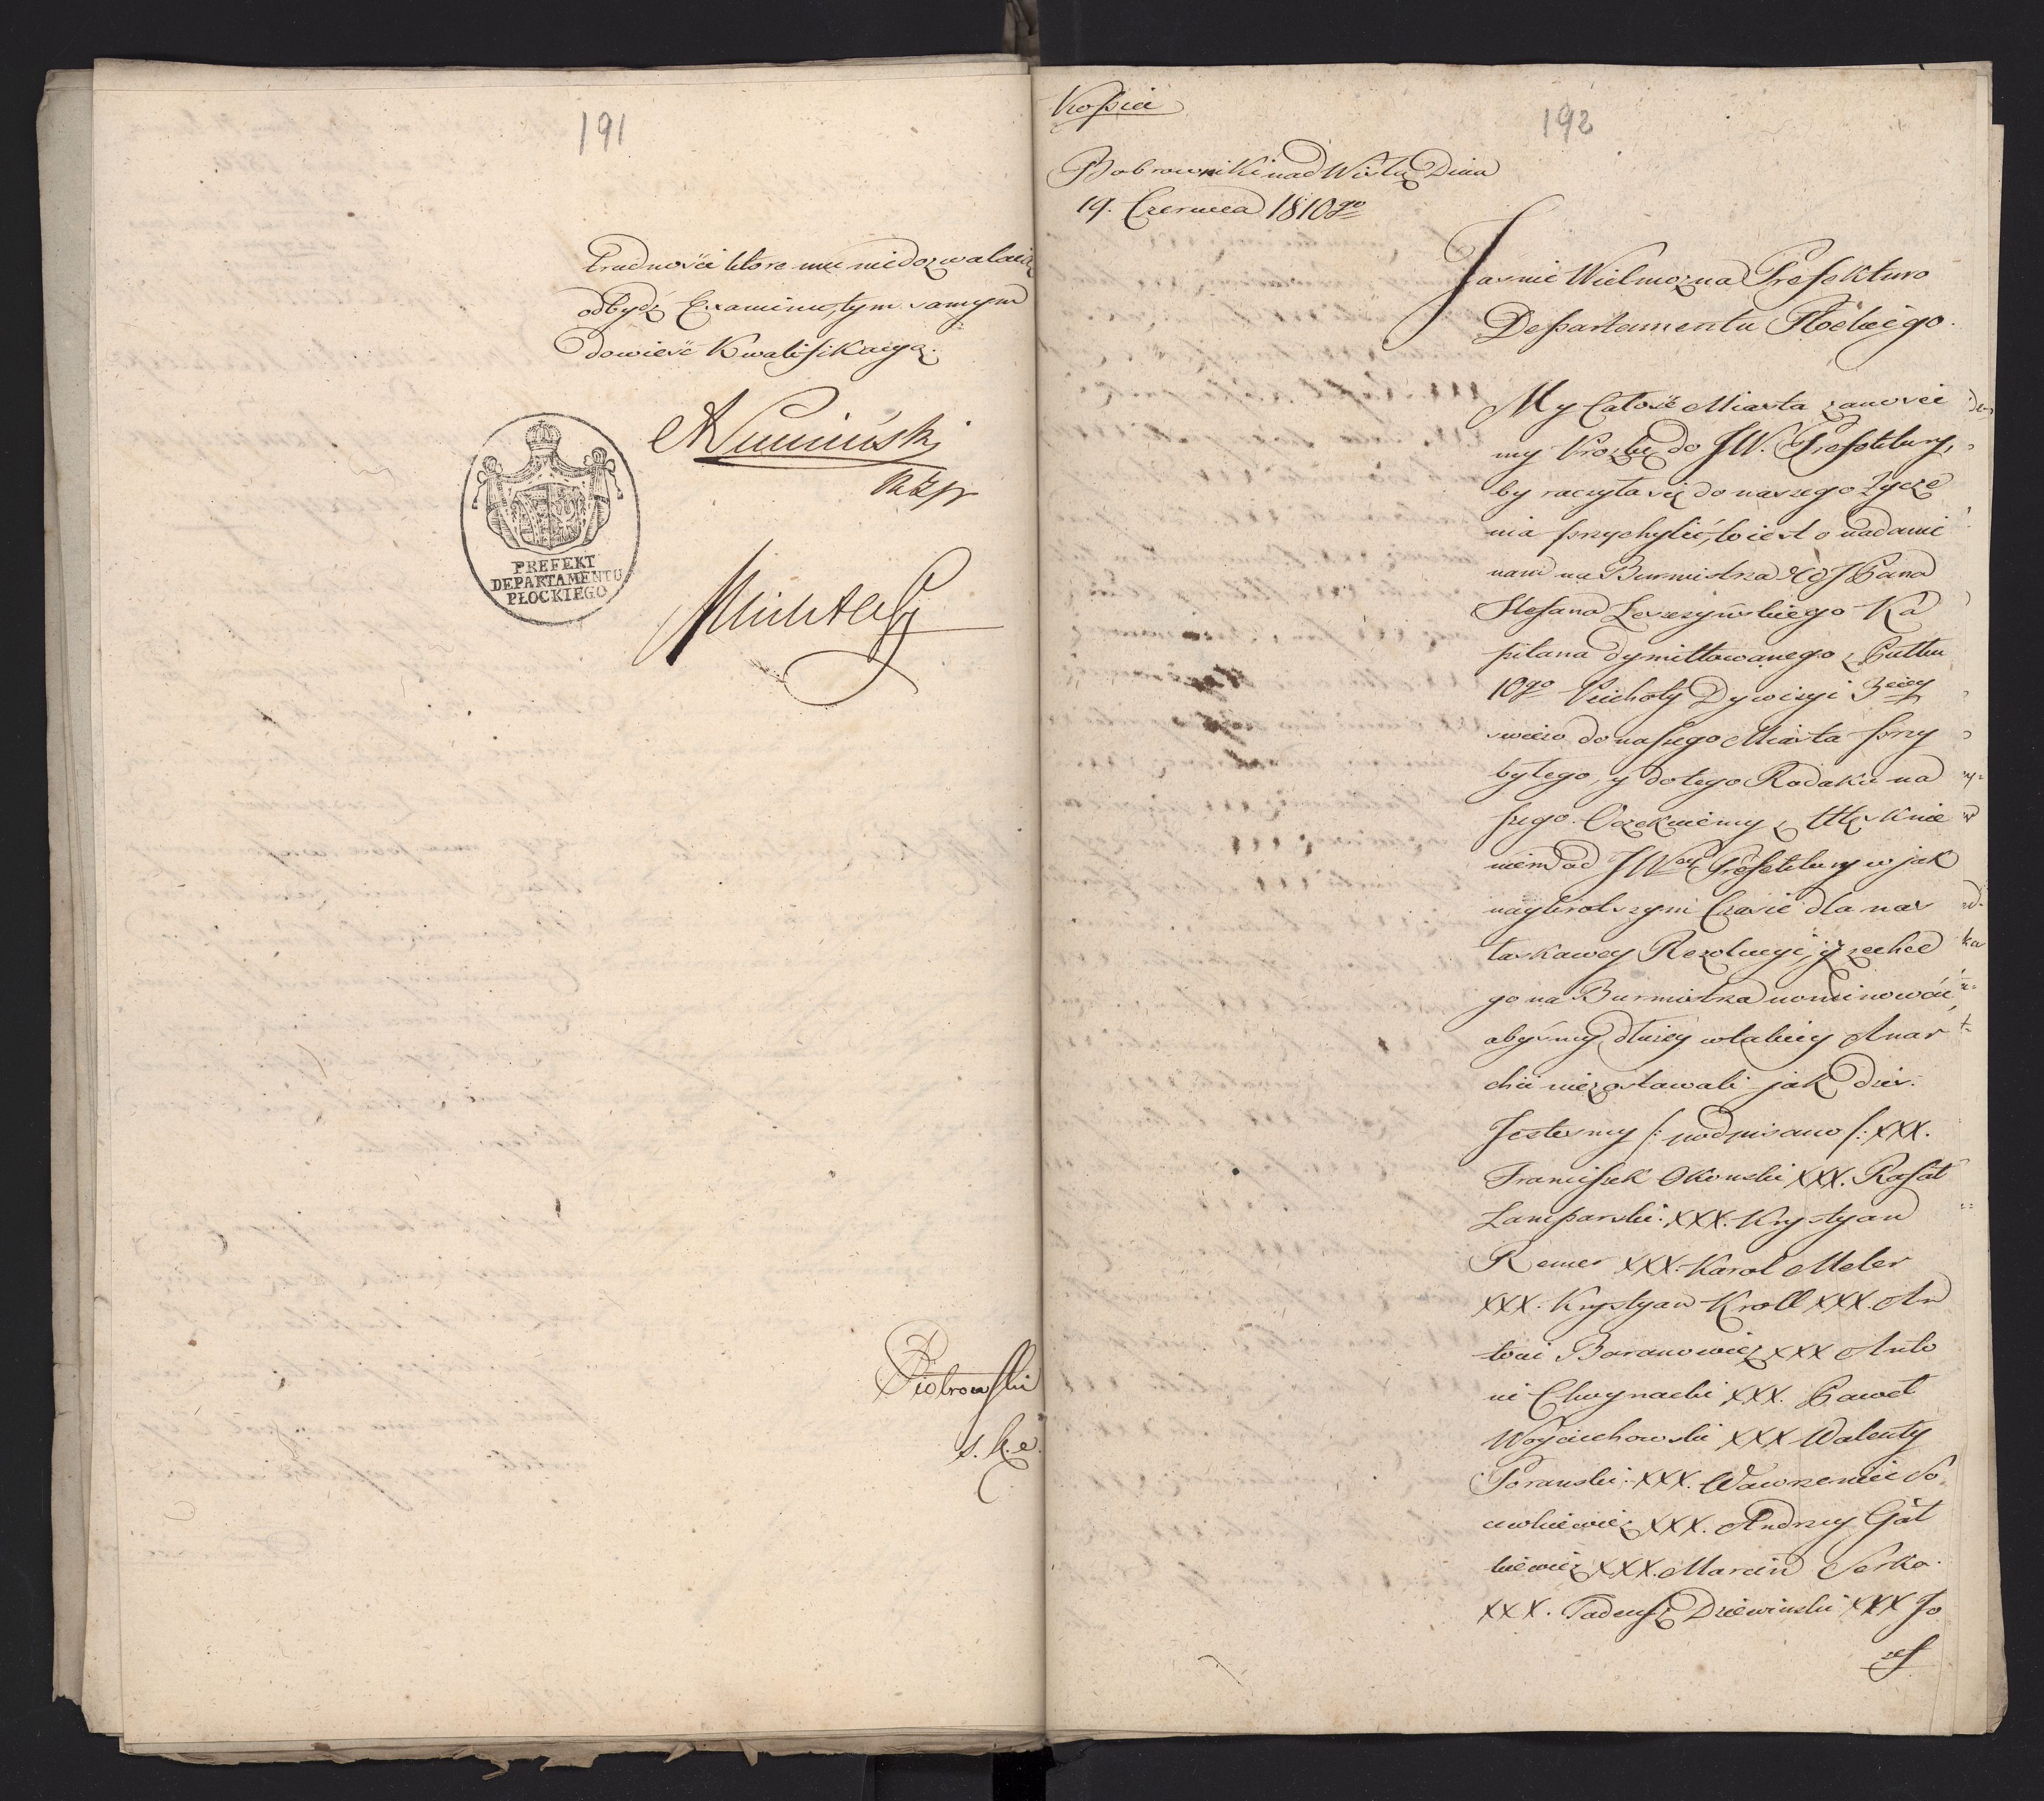 191
Trudności które mu niedozwalaią
odbydź Examinu, tym samym
dowieść Kwalifikacyą.
PREFEKT
DEPARTAMENTU
PŁOCKIEGO
Piotrowski
192
Kopia
Bobrowniki nad Wisłą Dnia
19. Czerwca 1810go
Jaśnie Wielmożna Prefekturo
Departamentu Płockiego.
My Całość Miasta zanosie
my Prozbę do JW. Prefektury,
by raczyła się do naszego życze
nia przychylić, to iest o nadanie
nam na Burmistrza
Stefana Leszczyńskiego Ka
pitana dymittowanego z Pułku
10go Piechoty Dywizyi 3ciey
swieżo do naszego Miasta przy
byłego, y do tego Rodaka na
szego. Oczekuiemy z Utęsknie
niem od JWey Prefektury w jak
naykrotszym Czasie dla nas
łaskawey Rezolucyi, iż zechce
go na Burmistrza nominować,
abyśmy dłużey w takiey Anar
chii niezostawali jak dziś.
Jestesmy /: podpisano /: XXX.
Franciszek Okonski XXX. Rafał
Lamparski. XXX. Krystyan
Remer XXX. Karol Meler
XXX. Krystyan Kroll XXX. An
toni Baranowicz XXX Anto
ni Chuynacki XXX. Paweł
Woyciechowski XXX Walenty
Poranski. XXX. Wawrzeniec
XXX. Andrzey Gał
kiewicz XXX. Marcin Serka.
XXX. Tadeusz Dziewinski XXX Jo
zef